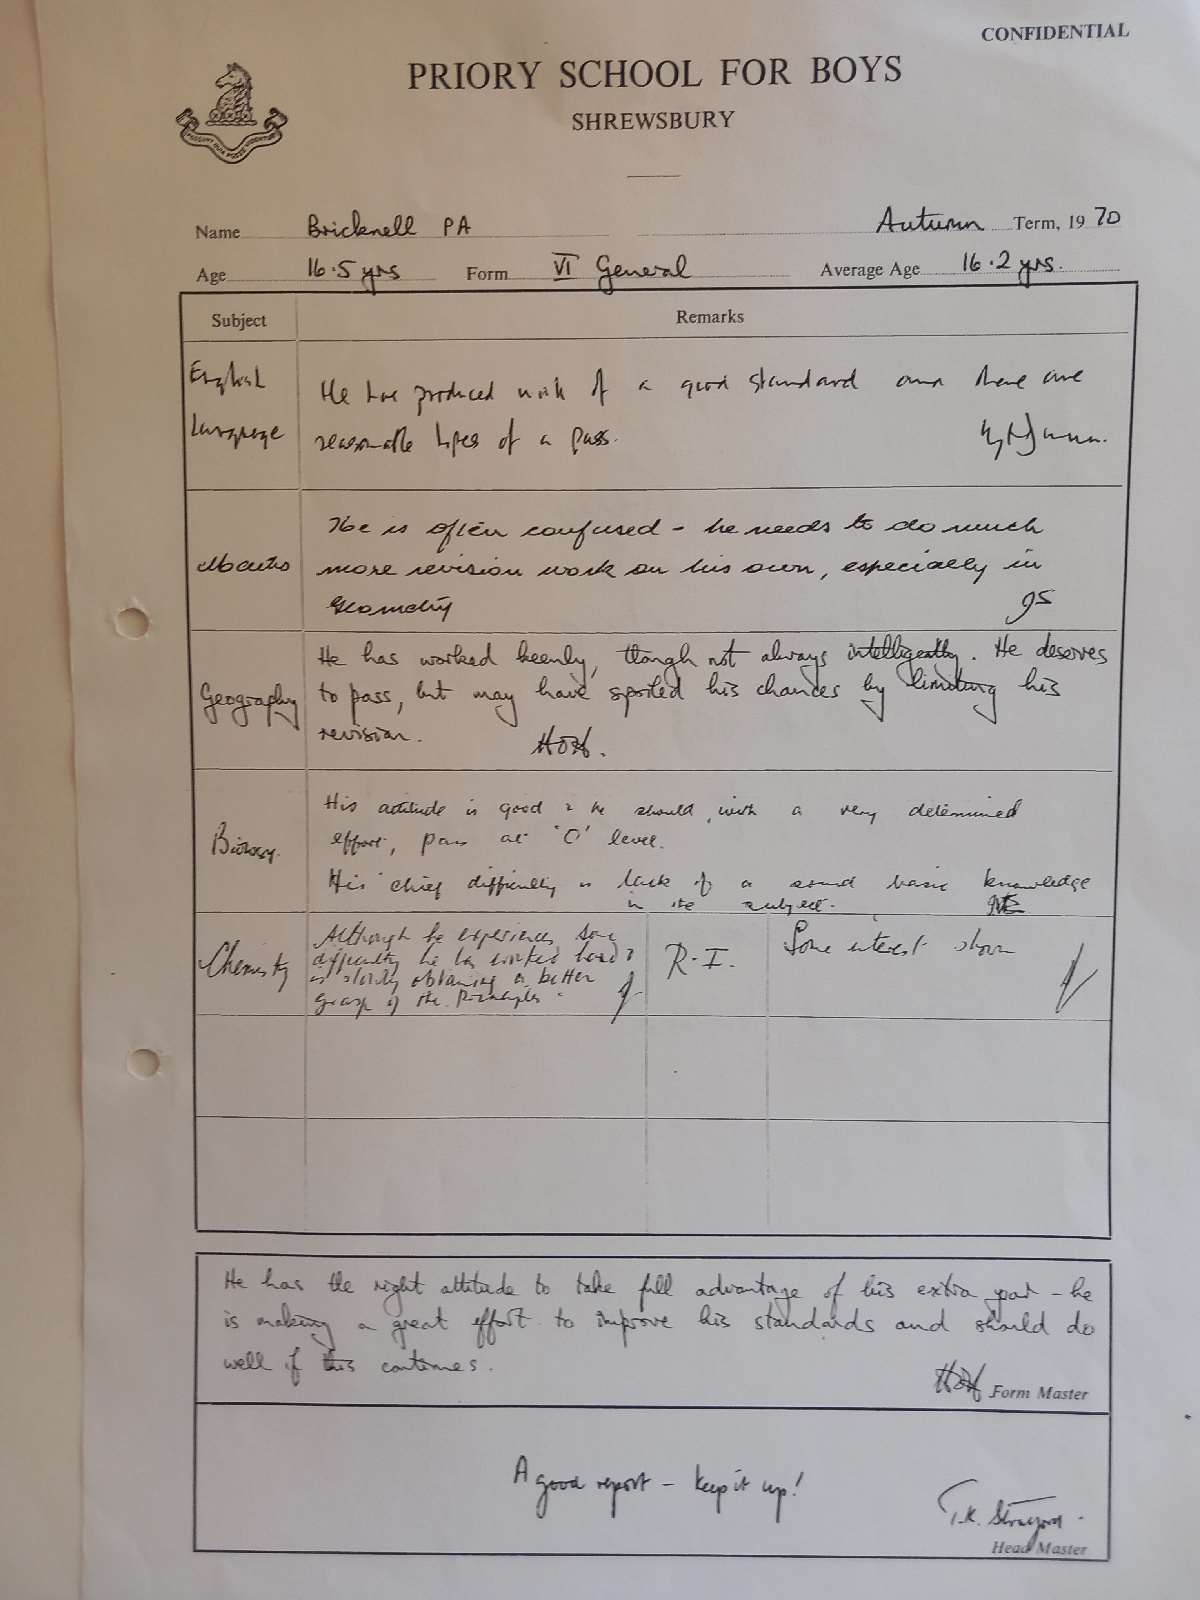 CONFIDENTIAL
PRIORY SCHOOL FOR BOYS
SHREWSBURY
Name Bricknell PA Autumn Term, 1970
Age 16.5 yrs Form VI General Average Age 16.2 yrs.
Subject Remarks
English
Language
He has produced work of a good standard and there are
reasonable hopes of a pass.
Maths
He is often confused - he needs to do much
more revision work on his own, especially in
Geometry
GS
Geography
He has worked keenly, though not always intelligently. He deserves
to pass, but may have spoiled his chances by limiting his
revision.
Biology.
His attitude is good & he should, with a very determined
effort, pass at 'O' level.
His chief difficulty is lack of a sound basic knowledge
in the subject.
Chemistry
Although he experiences some
difficulty he has worked hard &
is slowly obtaining a better
grasp of the Principles.
R.I.
Some interest shown
He has the right attitude to take full advantage of his extra year - he
is making a great effort to improve his standards and should do
well if this continues.
Form Master
A good report - keep it up!
T.K.
Head Master